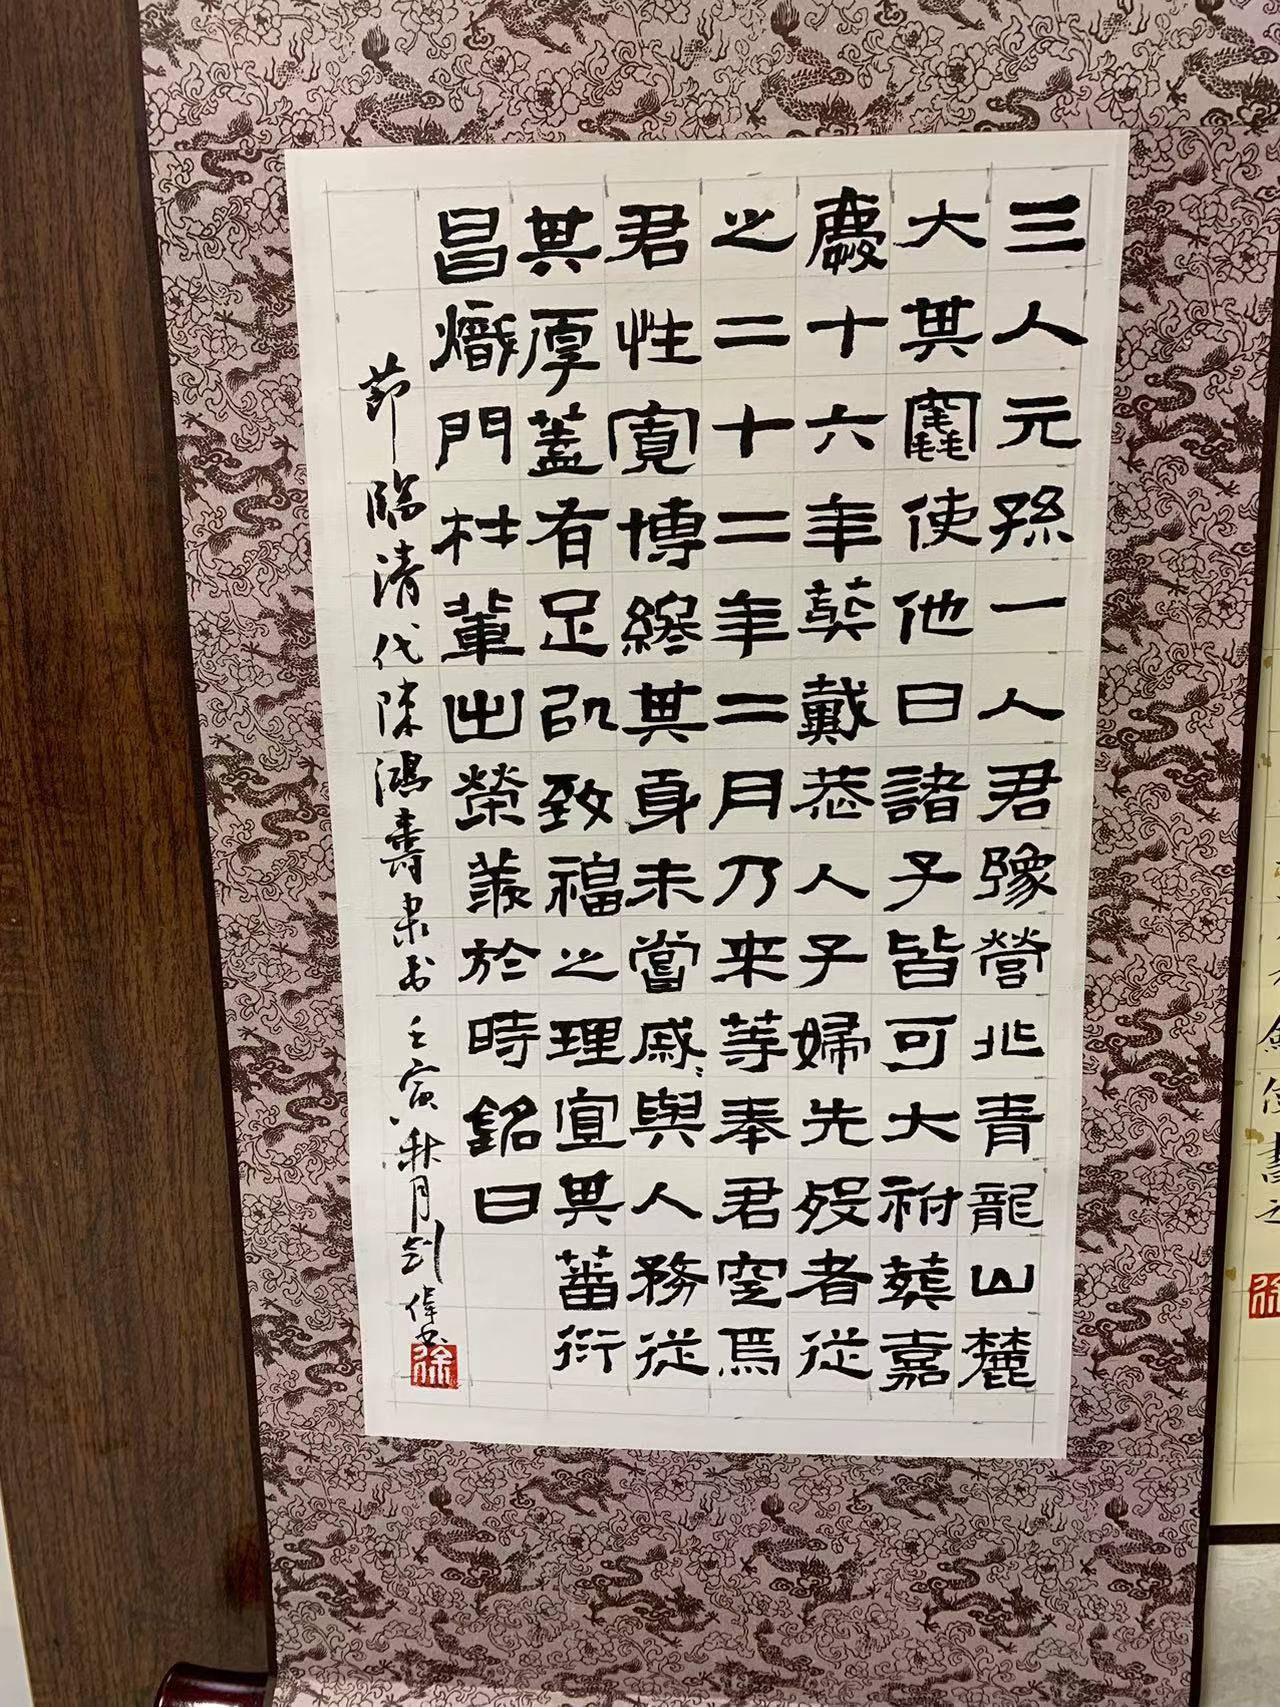 三人元孫一人君豫營兆青龍山麓
大其竁使他日諸子皆可大祔葬嘉
慶十六年葬戴恭人子婦先歿者從
之二十二年二月乃来等奉君窆焉
君性寬博終其身未嘗戚戚與人務從
其厚蓋有足以致福之理宜其蕃衍
昌熾門材輩出榮叢於時銘曰
節臨清代陳鴻壽隶书 壬寅秋月 剑伟书
徐